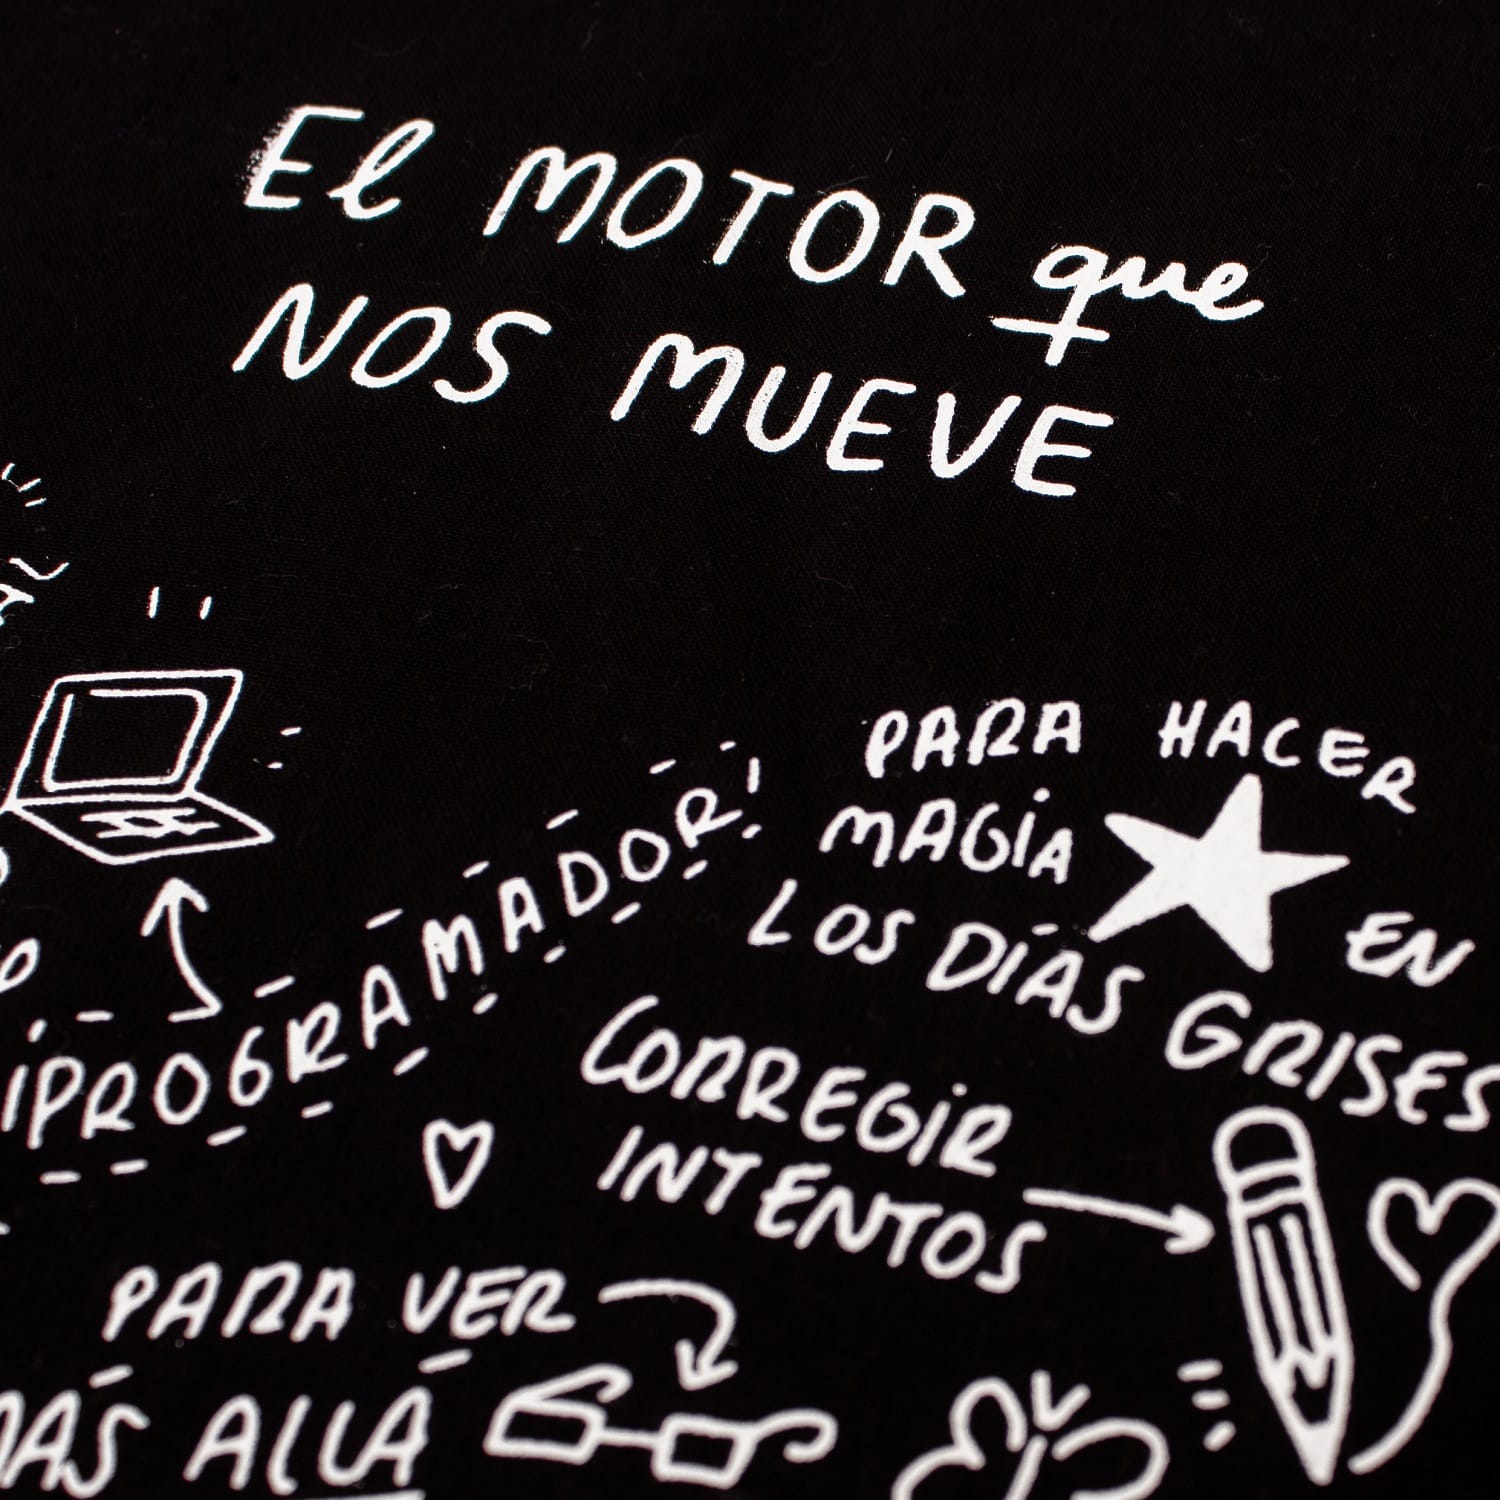 El MOTOR que
NOS MUEVE
PARA HACER
MAGÍA
EN
LOS DÍAS GRISES
¡PROGRAMADOR!
CORREGIR
INTENTOS
PARA VER
MÁS ALLÁ